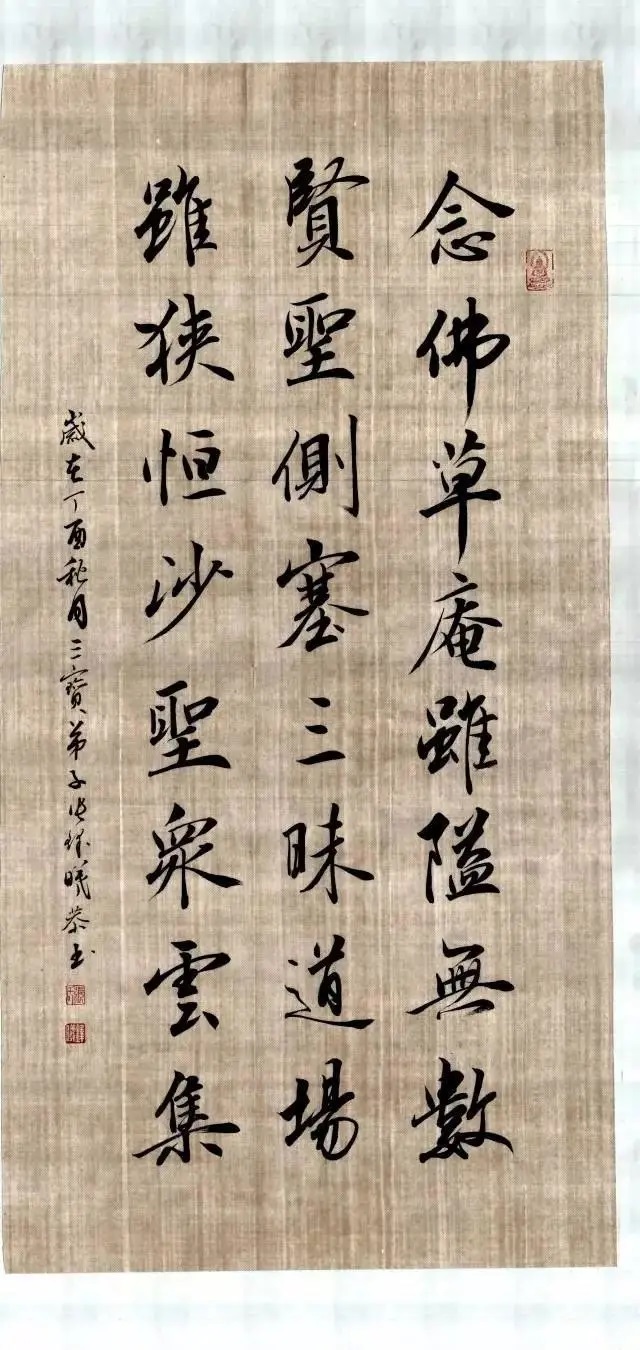 念佛草庵雖隘無數
賢聖側塞三昧道場
雖狹恒沙聖衆雲集
歲在丁酉秋月三寶弟子張 曦恭書